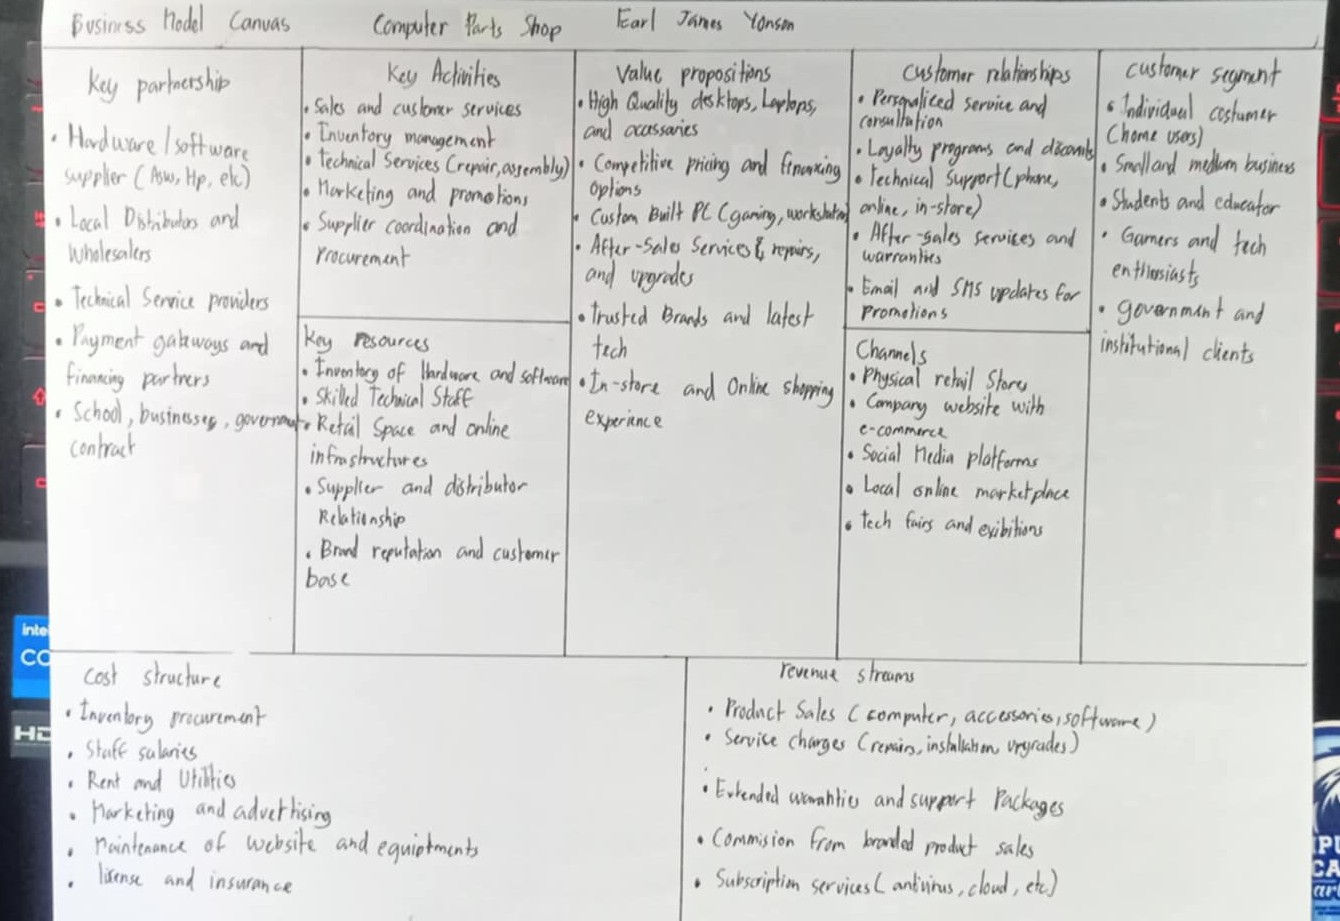 Business Model Canvas
Computer Parts Shop
Earl James Yonson
Key partnership
• Hardware/software
supplier (Asus, Hp, etc)
• Local Distributors and
Wholesalers
• Technical Service providers
• Payment gateways and
financing partners
• School, businesses, government
contract
Key Activities
• Sales and customer services
• Inventory management
• Technical Services (repair, assembly)
• Marketing and promotions
• Supplier coordination and
procurement
Key resources
• Inventory of Hardware and software
• Skilled Technical Staff
• Retail Space and online
infrastructures
• Supplier and distributor
Relationship
• Brand reputation and customer
base
Value propositions
• High Quality desktops, Laptops,
and accessaries
• Competitive pricing and financing
options
• Custom Built PC (gaming, workstation)
• After-Sales Services & repairs,
and upgrades
• Trusted Brands and latest
tech
• In-store and Online shopping
experience
Customer relationships
• Personalized service and
consultation
• Loyalty programs and discounts
• Technical Support (phone,
online, in-store)
• After-sales services and
warranties
• Email and SMS updates for
promotions
Channels
• Physical retail Stores
• Company website with
e-commerce
• Social Media platforms
• Local online marketplace
• tech fairs and exibitions
customer segment
• Individual costumer
(home users)
• Small and medium business
• Students and educator
• Gamers and tech
enthusiasts
• government and
institutional clients
cost structure
• Inventory procurement
• Staff salaries
• Rent and Utilities
• Marketing and advertising
• Maintenance of website and equiptments
• lisense and insurance
revenue streams
• Product Sales (computer, accessories, software)
• Service charges (repairs, installation, upgrades)
• Extended warranties and support Packages
• Commision from branded product sales
• Subscription services (antivirus, cloud, etc)